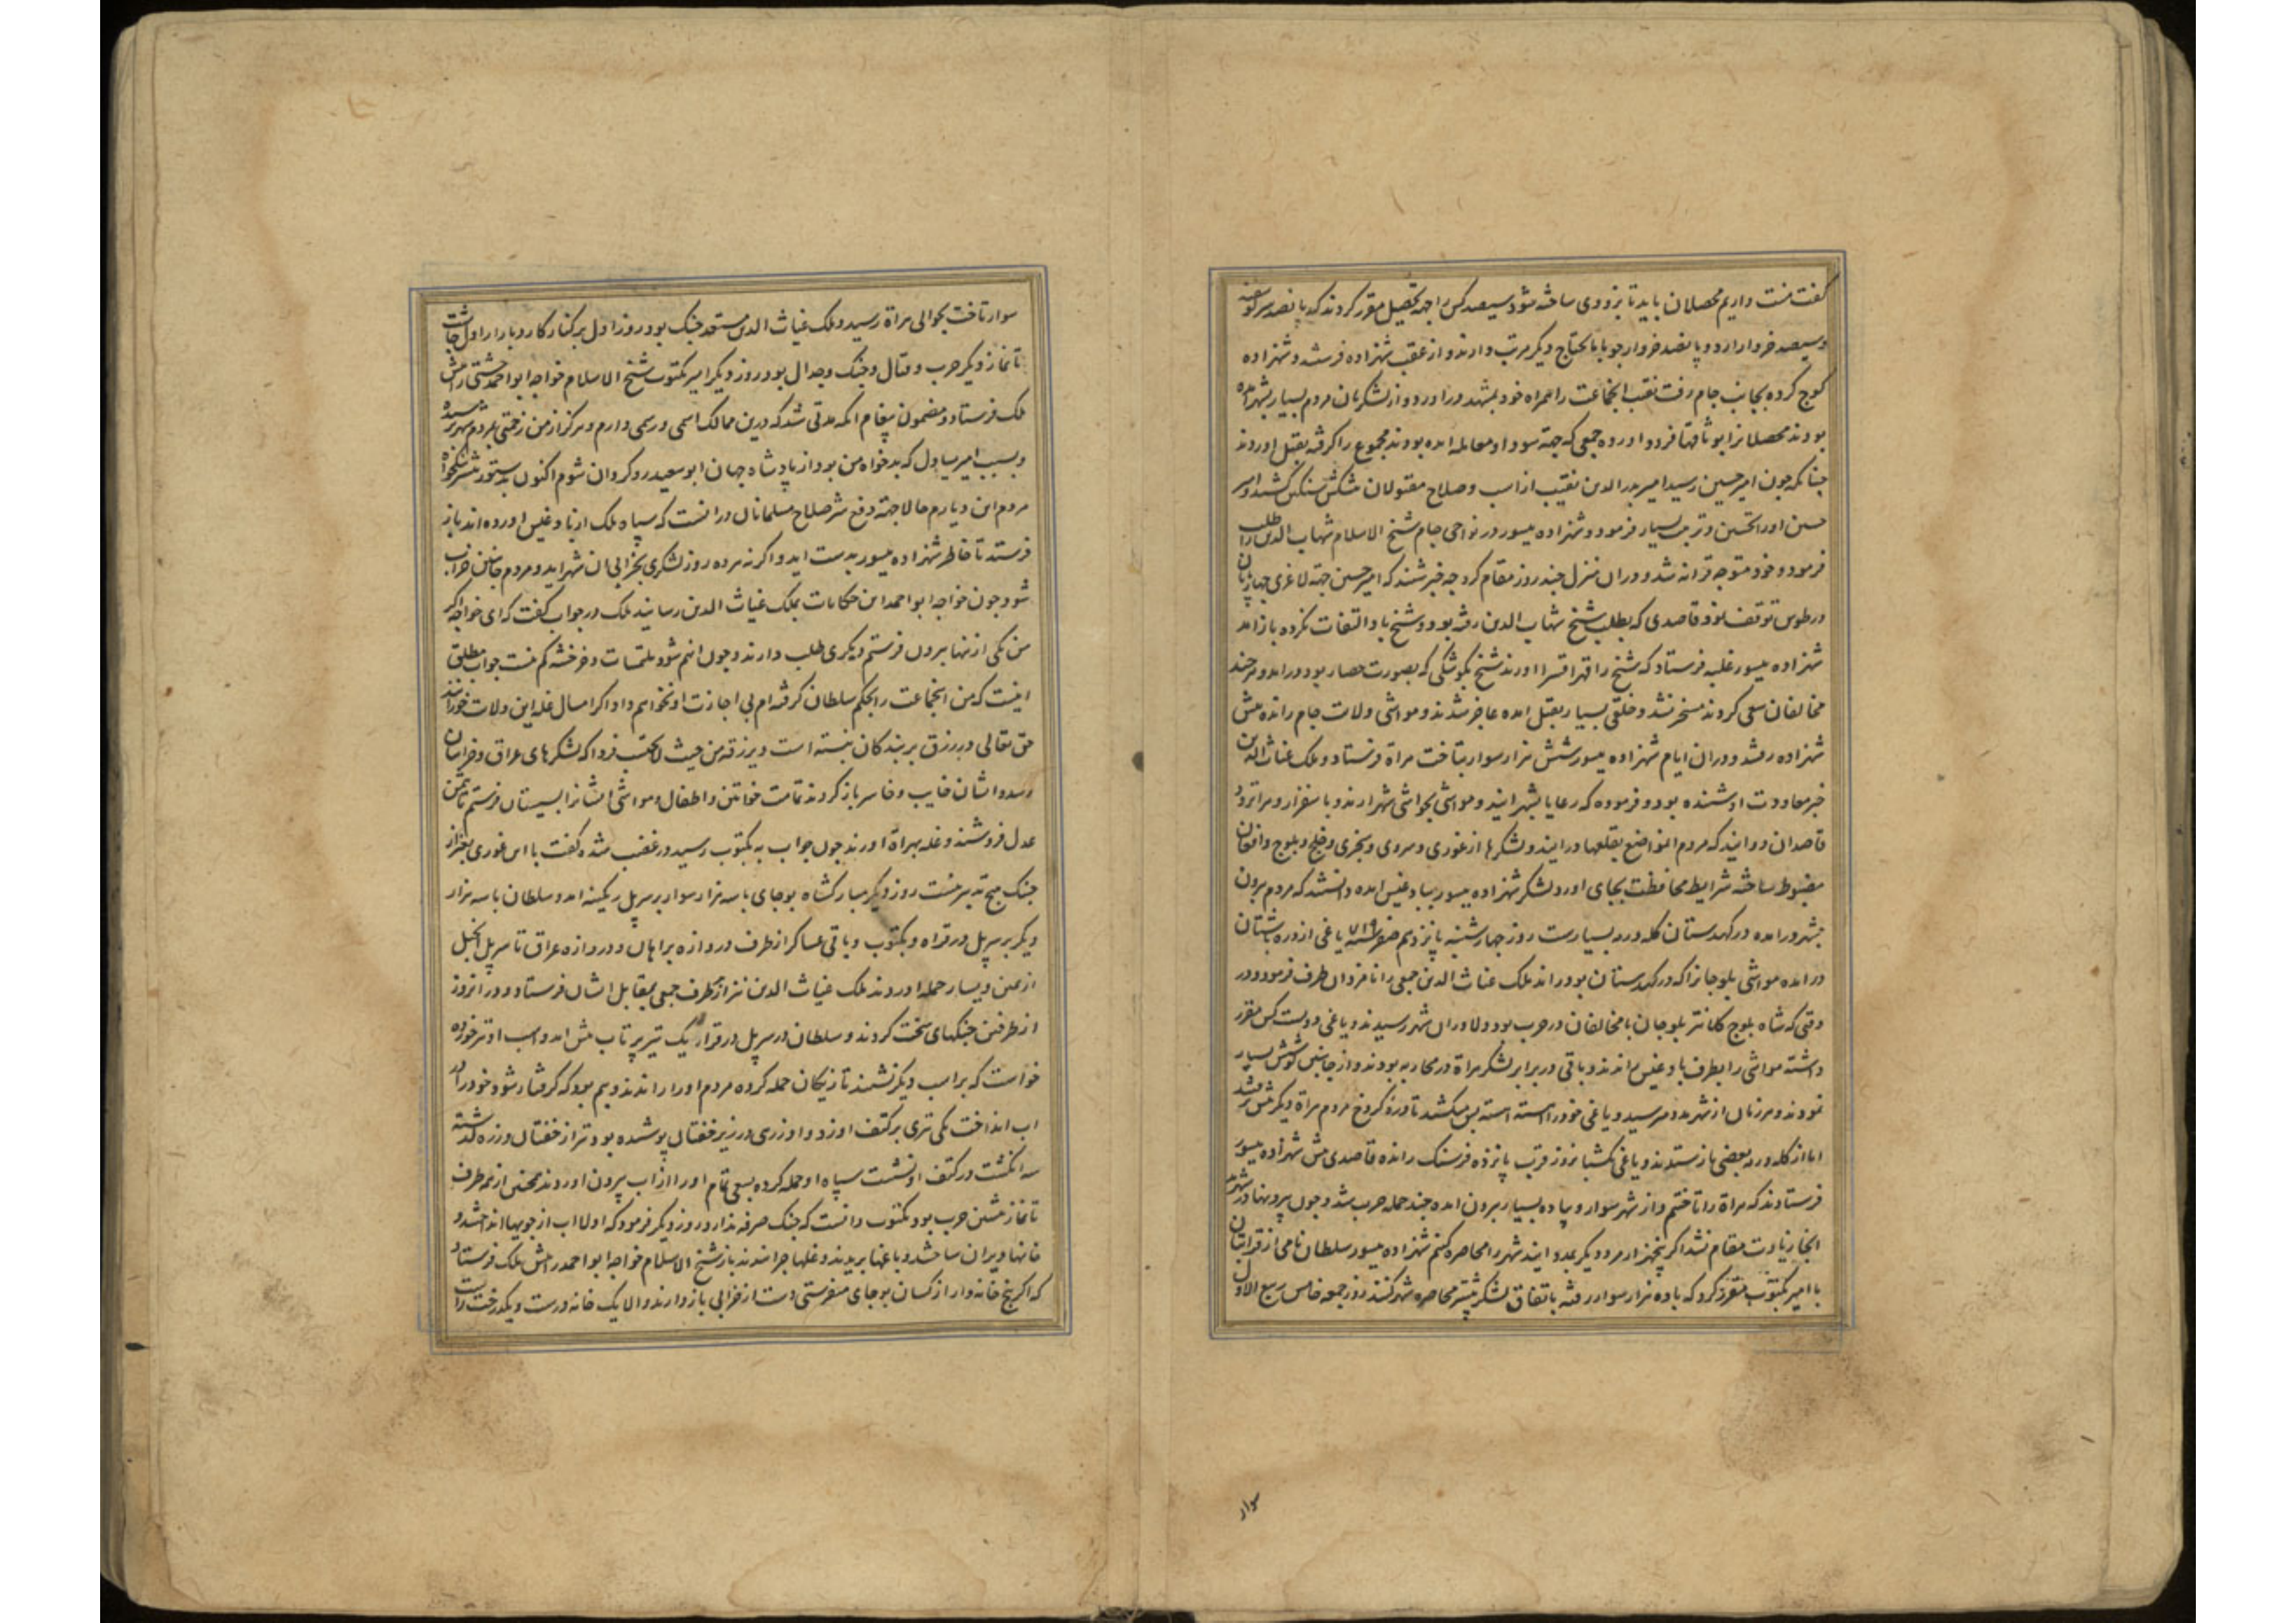 گفت منت داریم محصلان باید تا بزودی ساخته شود سیصد کس را جهة تحصیل مقرر کردند که پانصد سر گوسفند
و سیصد خروار ارد و پانصد خروار جو با مایحتاج دیگر مرتب دارند و از عقب شهزاده فرستند و شهزاده
کوچ کرده بجانب جام رفت نقیب انجماعت را همراه خود بمشهد دراورد و از لشکریان مردم بسیار بشهر امده
بودند محصلانرا بوثاقها فرود اورده جمعی که جهة سودا و معامله امده بودند مجموع را گرفته بقتل اوردند
چنانکه چون امیر حسین رسید امیر بدرالدین نقیب از اسب و صلاح مقتولان پیشکش سنگین کشید و امیر
حسین او را تحسین و تربیت بسیار فرمود و شهزاده یسور در نواحی جام شیخ الاسلام شهاب الدین را طلب
فرمود و خود متوجه شد و دران منزل چند روز مقام کرد چه خبر شنید که امیر حسین جهة لاغری چهارپایان
در طوس توقف نمود قاصدی که بطلب شیخ شهاب الدین رفته بود و شیخ باو التفات نکرده باز امد
شهزاده یسور غلبه فرستاد که شیخ را قهرا قسرا اورند شیخ بکوشکی که بصورت حصار بود درامد و هرچند
مخالفان سعی کردند مسخر نشد و خلقی بسیار بقتل امده عاجز شدند و مواشی ولات جام رانده پیش
شهزاده رفتند و دران ایام شهزاده یسور شش هزار سوار بتاخت هراة فرستاد و ملک غیاث الدین
خبر معاودت او شنیده بود و فرموده که رعایا بشهر ایند و مواشی بحواشی شهر ارند و باسفزار و هراترود
قاصدان دوانید که مردم انمواضع بقلعها درایند و لشکرها از غوری و هروی و سجزی و خلج و بلوج و افغان
مضبوط ساخته شرایط محافظت بجای اورد لشکر شهزاده یسور ببادغیس امده دانستند که مردم برون
بشهر درامده در کهدستان گله و رمه بسیارست روز چهارشنبه پانزدهم صفر سنه ۷۱۹ یاغی از دره باشتان
درامده مواشی بلوجانرا که در کهدستان بود راند ملک غیاث الدین جمعی را نامزد ان طرف فرمود و در
وقتی که شاه بلوج کلانتر بلوجان با مخالفان در حرب بود دلاوران شهر رسیدند و یاغی دویست کس مقرر
داشته مواشی را بطرف بادغیس راندند و باقی در برابر لشکر هراة در محاربه بودند و از جانبین کوشش بسیار
نمودند و هر زمان از شهر مدد میرسید و یاغی خود را اهسته اهسته پس میکشید تا دره کروخ مردم هراة دیگر پیش نرفتند
اما از گله و رمه بعضی بازستدند و یاغی یکشبانروز قرب پانزده فرسنگ رانده قاصدی پیش شهزاده یسور
فرستادند که هراة را تاختیم و از شهر سوار و پیاده بسیار برون امده چند حمله حرب شد و چون برونها در شهرند
انجا زیادت مقام نشد اگر پنجهزار مرد دیگر بمدد ایند شهر را محاصره کنیم شهزاده یسور سلطان نامی از قرابتان
با امیر بکتوب مقرر کرد که با ده هزار سوار رفته باتفاق لشکر پیشتر محاصره شهر کنند روز جمعه خامس ربیع الاول
سوار
سوار تاخت بحوالی هراة رسید و ملک غیاث الدین مستعد جنگ بود روز اول بر کنار کاروبار از اول چاشت
تا نماز دیگر حرب و قتال و جنگ و جدال بود روز دیگر امیر بکتوب شیخ الاسلام خواجه ابو احمد چشتی را پیش
ملک فرستاد و مضمون پیغام انکه مدتی شد که درین ممالک اسمی و رسمی دارم و هرگز از من زحمتی بمردم شهر نرسیده
و بسبب امیر یساول که بدخواه من بود از پادشاه جهان ابو سعید روگردان شوم اکنون بدستور پیشتر نیکخواه
مردم این دیارم حالا جهة دفع شر صلاح مسلمانان درانست که سپاه ملک ازنا و غیس اورده اند باز
فرستد تا خاطر شهزاده یسور بدست اید و اگر نه هر ده روز لشکری بخرابی ان شهر اید و مردم جانبین خراب
شود چون خواجه ابو احمد این حکایات بملک غیاث الدین رسانید ملک در جواب گفت که ای خواجه اگر
من یکی از ینها برون فرستم دیگری طلب دارند و چون انهم شود ملتمسات و خرخشه کم نیست جواب مطلق
اینست که من انجماعت را بحکم سلطان گرفته ام بی اجازت او نخواهم داد و اگر امسال غله این ولات خورانند
حق تعالی در رزق بر بندگان نبسته است و یرزقه من حیث لایحتسب فردا که لشکرهای عراق و خراسان
رسد و ایشان خایب و خاسر بازگردند تمامت خواتین و اطفال و مواشی ایشانرا بسیستان فرستم تا بثمن
عدل فروشند و غله بهراة اورند چون جواب به بکتوب رسید در غضب شده گفت با این غوری بغیر از
جنگ هیچ تدبیر نیست روز دیگر مبارکشاه بوجای با سه هزار سوار بر سر پل ریکینه امد و سلطان با سه هزار
دیگر بر سر پل درقراه و بکتوب و باقی عساکر از طرف دروازه براهان و دروازه عراق تا سر پل انجیل
از یمین و یسار حمله اوردند ملک غیاث الدین نیز از هر طرف جمعی بمقابل ایشان فرستاد و دران روز
از طرفین جنگهای سخت کردند و سلطان در سر پل درقراه یک تیر پرتاب پیش امد و اسب او تیر خورده
خواست که بر اسب دیگر نشیند تازیکان حمله کرده مردم او را راندند و بیم بود که گرفتار شود خود را در
اب انداخت یکی تیری بر کتف او زد و او زرهی در زیر خفتان پوشیده بود تیر از خفتان و زره گذشته
سه انگشت در کتف او نشست سپاه او حمله کرده بسعی تمام او را از اب بیرون اوردند همچنین از همه طرف
تا نماز پیشین حرب بود بکتوب دانست که جنگ صرفه ندارد روز دیگر فرمود که اولا اب از جویها انداختند و
خانها ویران ساختند و باغها بریدند و غلها چرانیدند باز شیخ الاسلام خواجه ابو احمد را پیش ملک فرستاد
که اگر پنج خانه وار از کسان بوجای میفرستی دست از خرابی بازدارند و الا یک خانه درست و یکدرخت راست